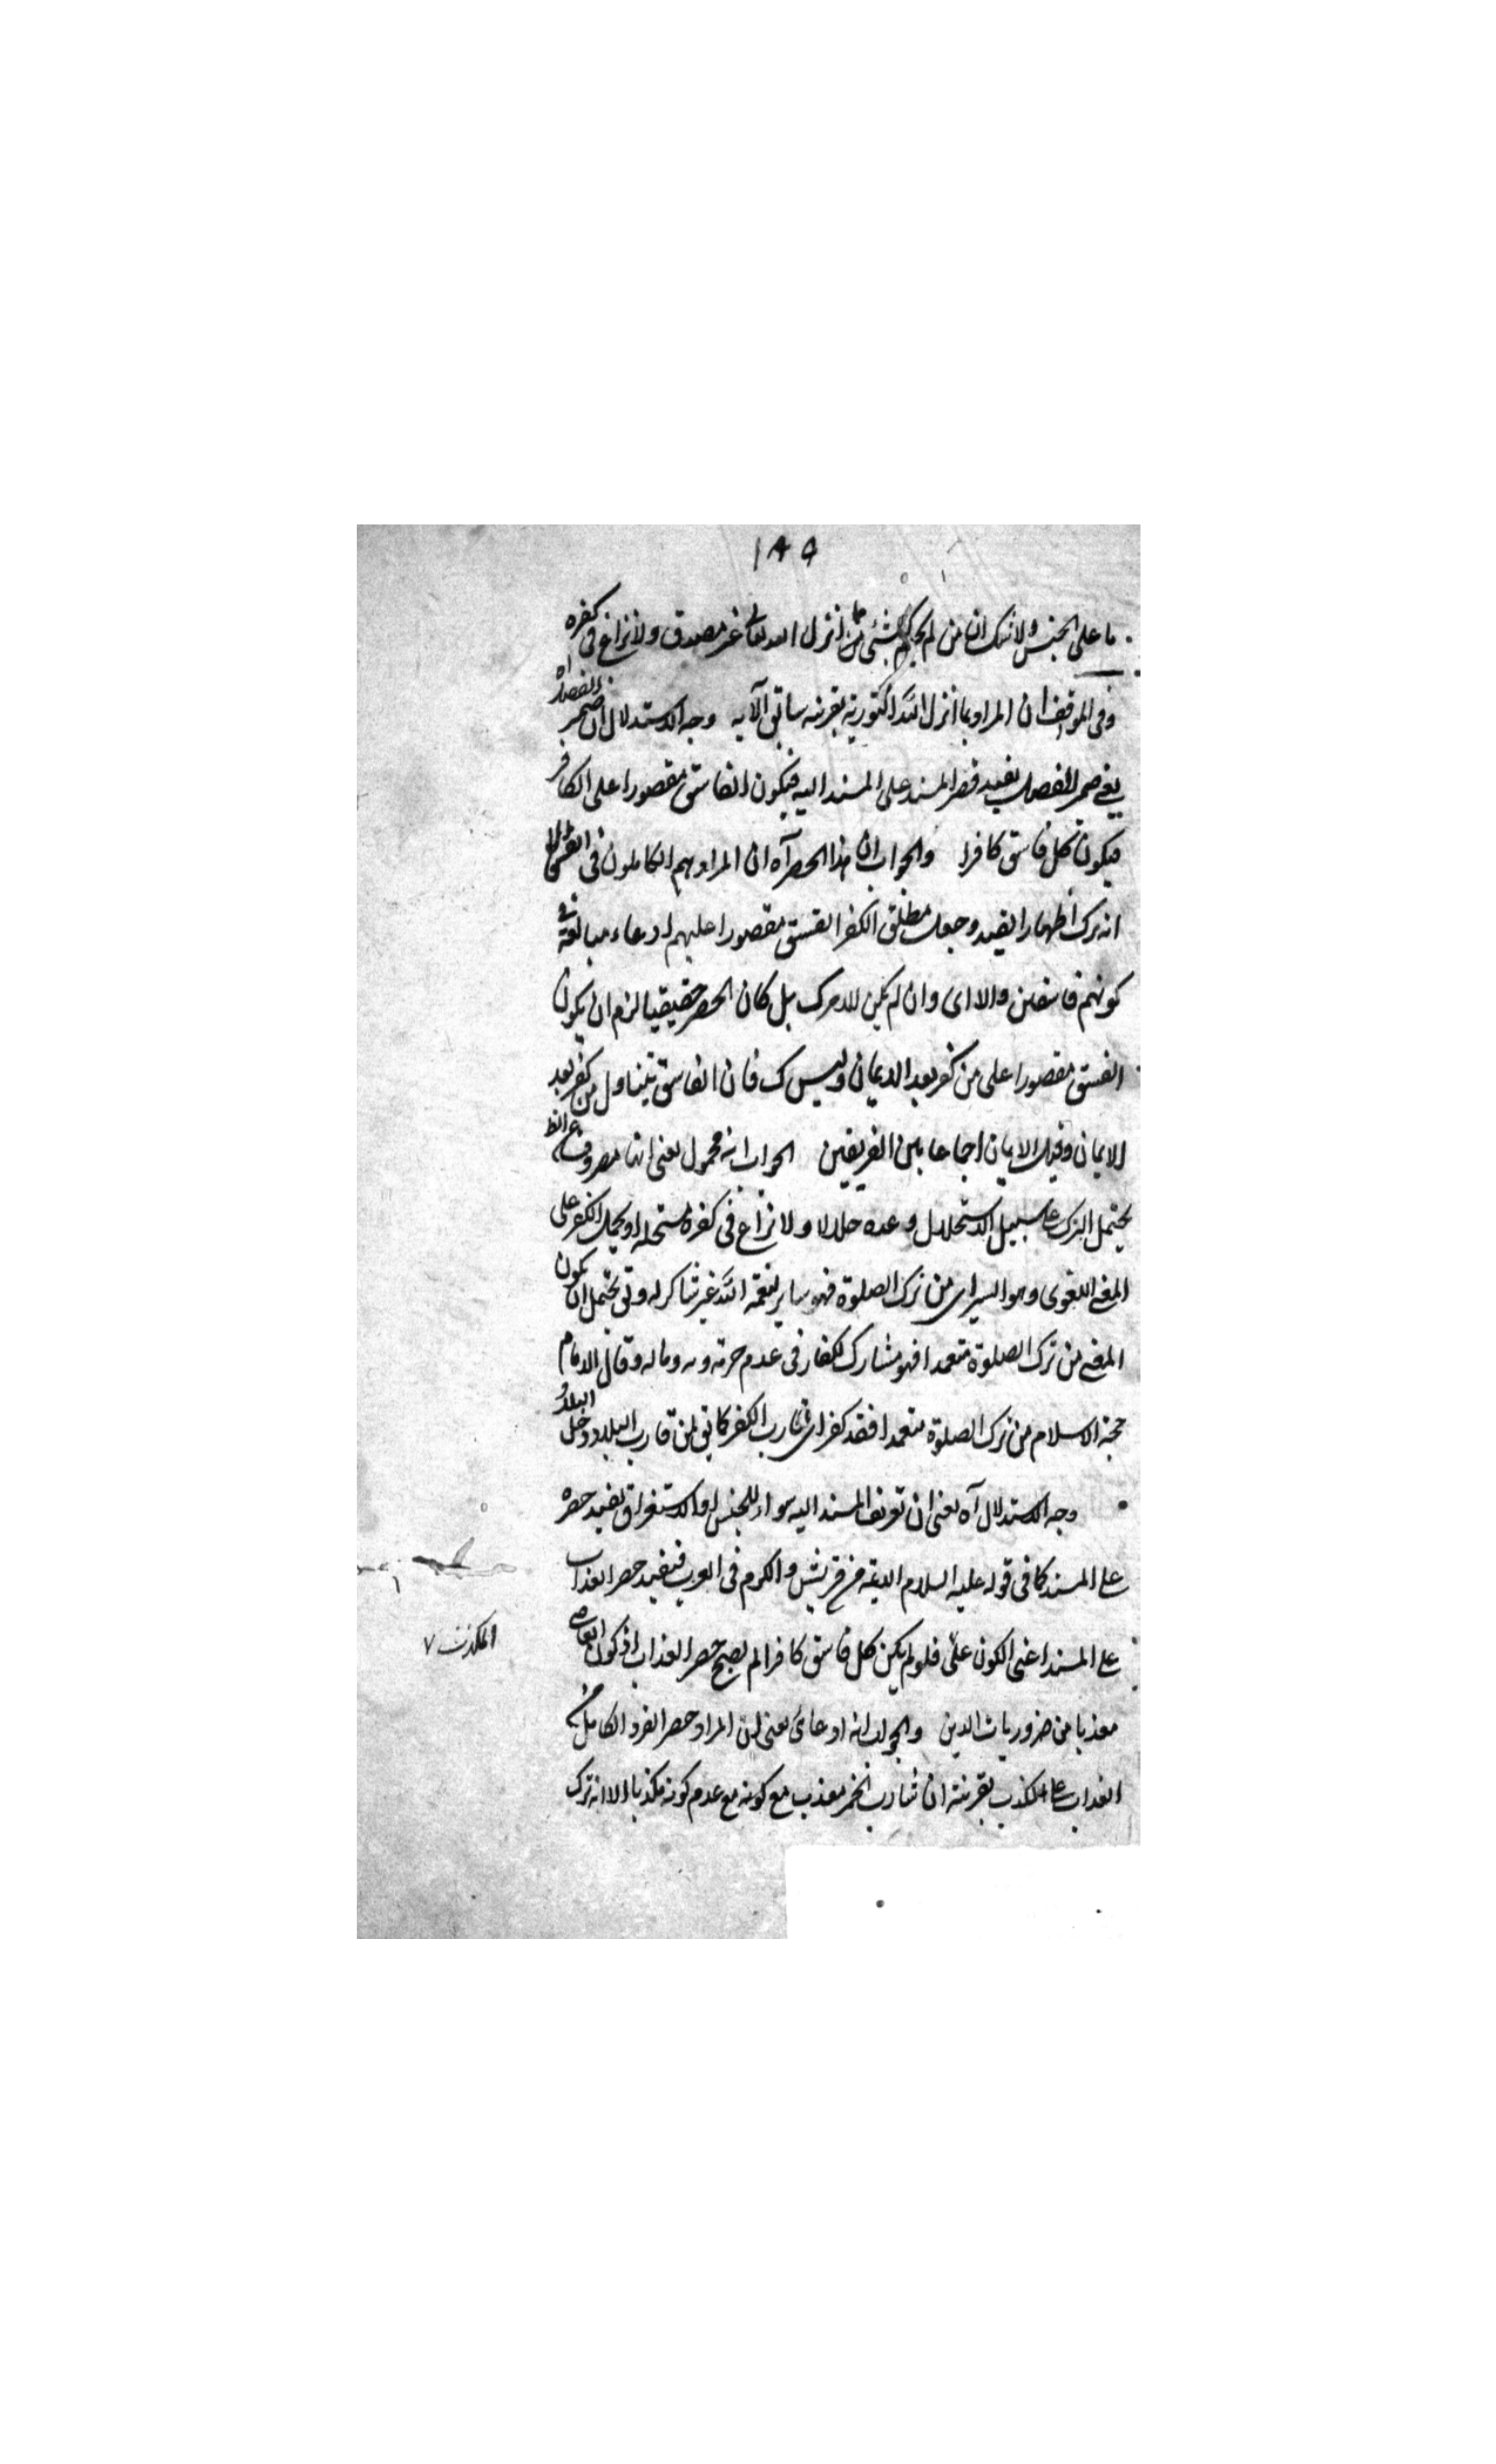 ١٨٩
ما على الجنس ولا شك ان من لم يحكم بشئ مما انزل الله تعالى غير مصدق ولا نزاع فى كفره
وفى المواقف ان المراد بما انزل الله التورية بقرينة سابق الآيه وجه الاستدلال ان ضمير الفصل اه
يعنى ضمير الفصل يفيد قصر المسند على المسند اليه فيكون الفاسق مقصورا على الكافر
فيكون كل فاسق كافرا والجواب ان هذا الحصر آه ان المراد هم الكاملون فى الفسق الا
انه ترك اظهار القيد وجعل مطلق الفسق مقصورا عليهم ادعاء مبالغة فى
كونهم فاسقين والا اى وان لم يكن للامر ك بل كان الحصر حقيقيا لزم ان يكون
الفسق مقصورا على من كفر بعد الايمان وليس ك فان الفاسق يتناول من كفر بعد
الايمان وقبل الايمان اجماعا بين الفريقين الجواب انه محمول يعنى انها مصروفة عن الظ
يحتمل الترك على سبيل الاستحلال وعده حلالا ولا نزاع فى كفر مستحله او يحمل الكفر على
المعنى اللغوى وهو الستر اى من ترك الصلوة فهو ساتر لنعمة الله غير شاكر له وقى يحتمل ان يكون
المعنى من ترك الصلوة متعمدا فهو مشارك للكفار فى عدم حرمة دمه وماله وقال الامام
حجة الاسلام من ترك الصلوة متعمدا فقد كفر اى قارب الكفر كما يق لمن قارب البلد دخل البلد
وجه الاستدلال آه يعنى ان تعريف المسند اليه سواء للجنس او الاستغراق يفيد حصره
على المسند كما فى قوله عليه السلام الايمة من قريش والكرم فى العرب فيفيد حصر العذاب
على المسند اعنى الكون على فلو لم يكن كل فاسق كافرا لم يصح حصر العذاب اذ كون العاصى
المكذب ٧
معذبا من ضروريات الدين والجواب انه ادعائى يعنى ان المراد حصر الفرد الكامل من
العذاب على المكذب بقرينة ان شارب الخمر معذب مع كونه مع عدم كونه مكذبا الا انه ترك